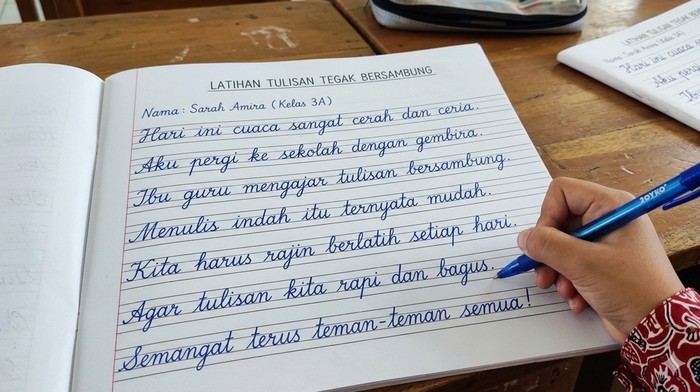 LATIHAN TULISAN TEGAK BERSAMBUNG
Nama : Sarah Amira (Kelas 3A)
Hari ini cuaca sangat cerah dan ceria.
Aku pergi ke sekolah dengan gembira.
Ibu guru mengajar tulisan bersambung.
Menulis indah itu ternyata mudah.
Kita harus rajin berlatih setiap hari.
Agar tulisan kita rapi dan bagus.
Semangat terus teman-teman semua!
JOYKO
LATIHAN TULISAN TEGAK
Nama : Sarah Amira (Kelas 3A)
Hari ini cuaca
Aku pergi